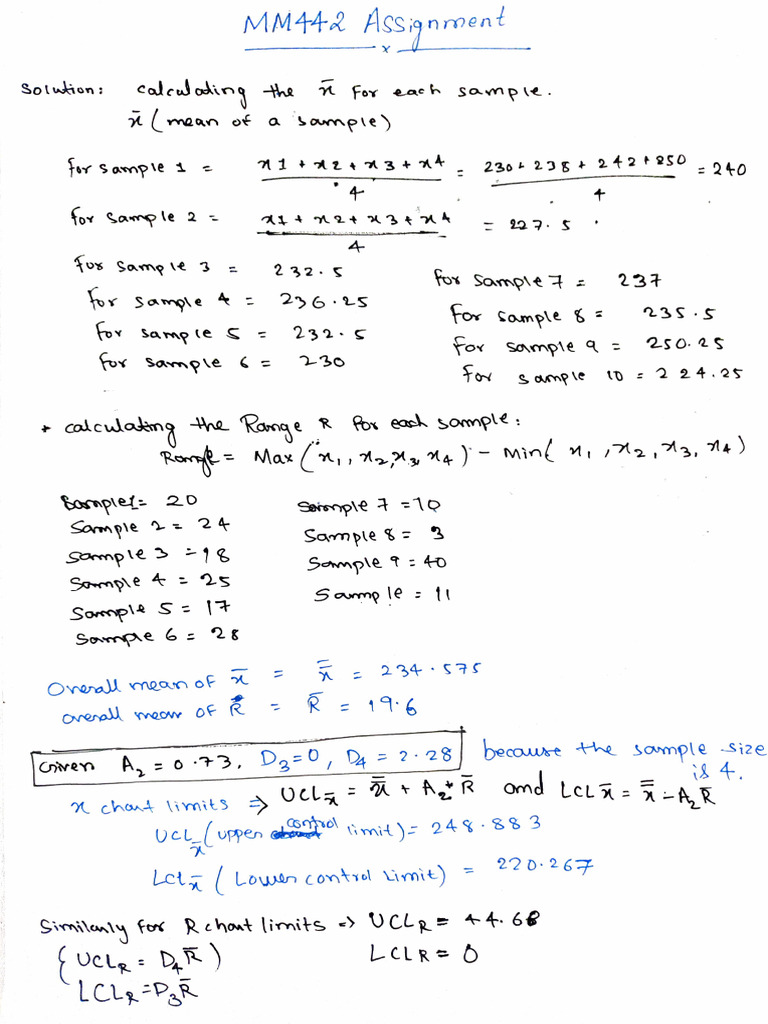 MM442 Assignment
x
Solution: Calculating the x̄ for each sample.
x̄ (mean of a sample)
for sample 1 = (x1 + x2 + x3 + x4)/4 = (230 + 238 + 242 + 250)/4 = 240
for sample 2 = (x1 + x2 + x3 + x4)/4 = 227.5
for sample 3 = 232.5
for sample 4 = 236.25
for sample 5 = 232.5
for sample 6 = 230
for sample 7 = 237
for sample 8 = 235.5
for sample 9 = 250.25
for sample 10 = 224.25
* calculating the Range R for each sample:
Range = Max (x₁, x₂, x₃, x₄) - Min( x₁, x₂, x₃, x₄)
Sample1 = 20
Sample 2 = 24
Sample 3 = 18
Sample 4 = 25
Sample 5 = 17
Sample 6 = 28
Sample 7 = 10
Sample 8 = 3
Sample 9 = 40
Sample = 11
Overall mean of x̄ = x̿ = 234.575
overall mean of R̄ = R̄ = 19.6
Given A₂ = 0.73, D₃=0, D₄ = 2.28 because the sample size is 4.
x chart limits => UCLx̄ = x̿ + A₂* R̄ and LCLx̄ = x̿ - A₂R̄
UCLx̄ (upper control limit) = 248.883
LCLx̄ (Lower control Limit) = 220.267
Similarly for R chart limits => UCLR = 44.68
{ UCLR = D₄R̄ ) LCLR = 0
LCLR = D₃R̄